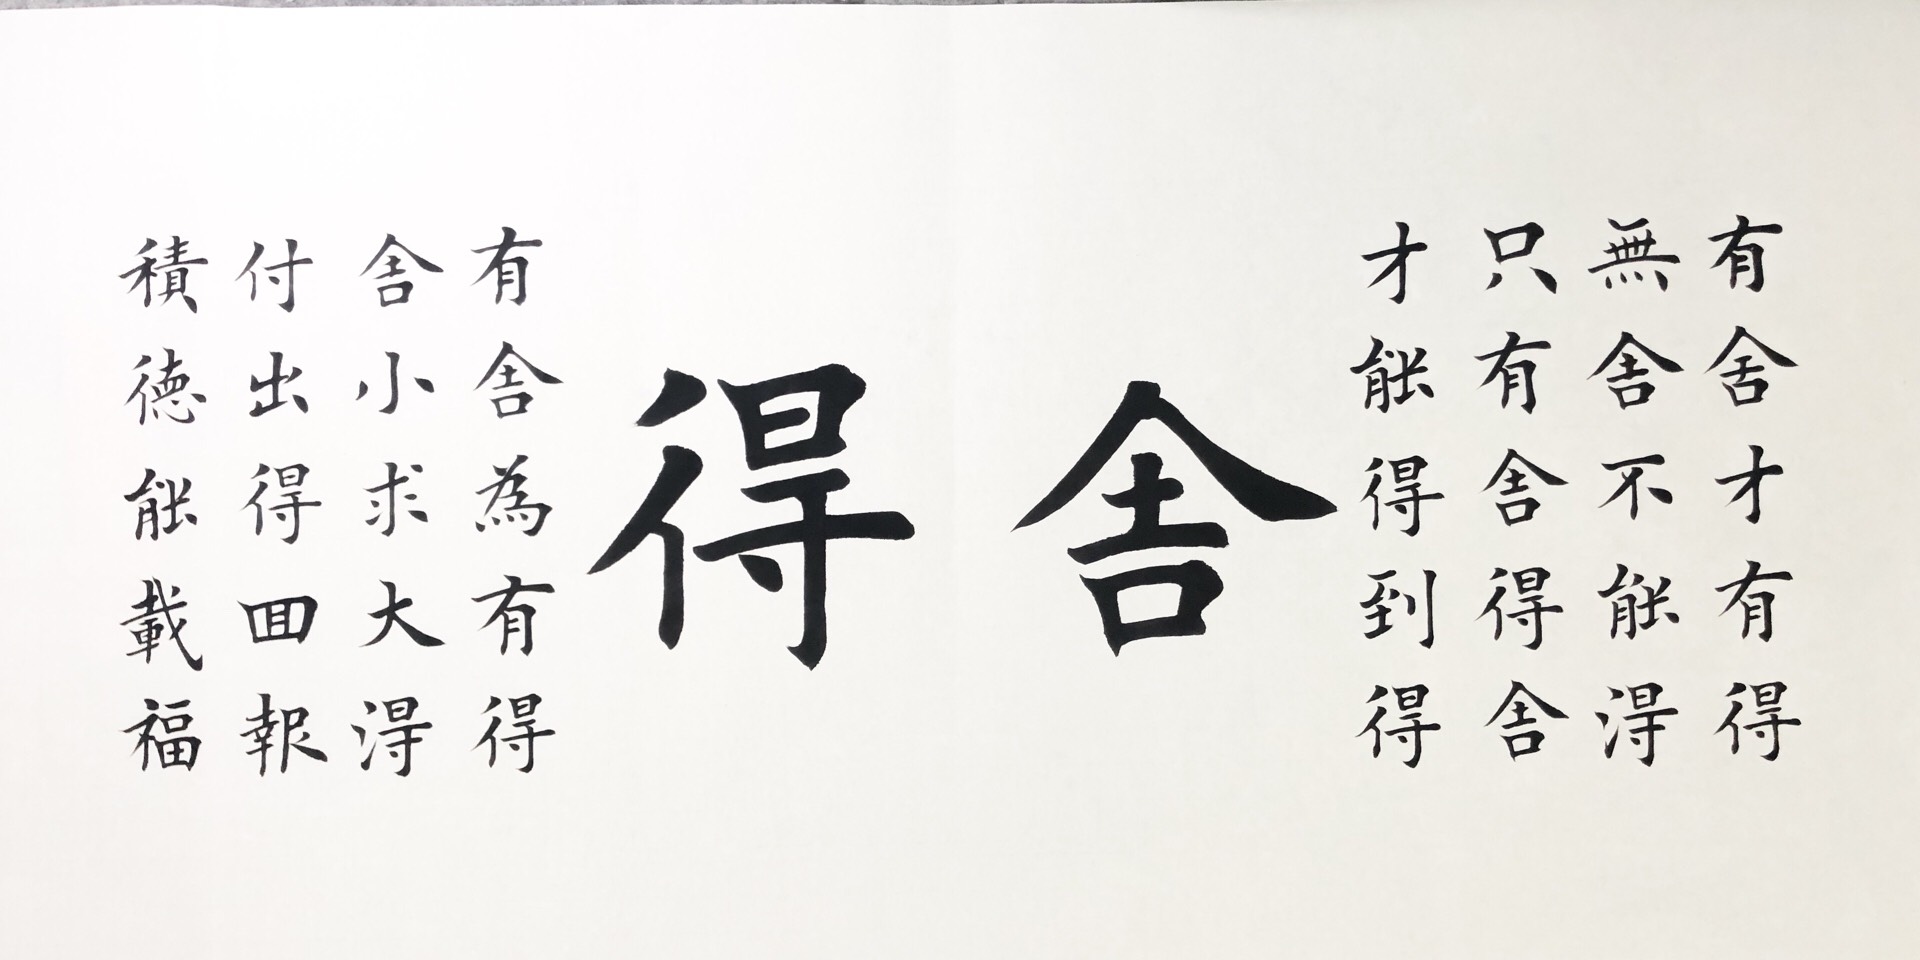 有舍才有得
無舍不能淂
只有舍得舍
才能得到得
舍得
有舍為有得
舍小求大淂
付出得回報
積德能載福